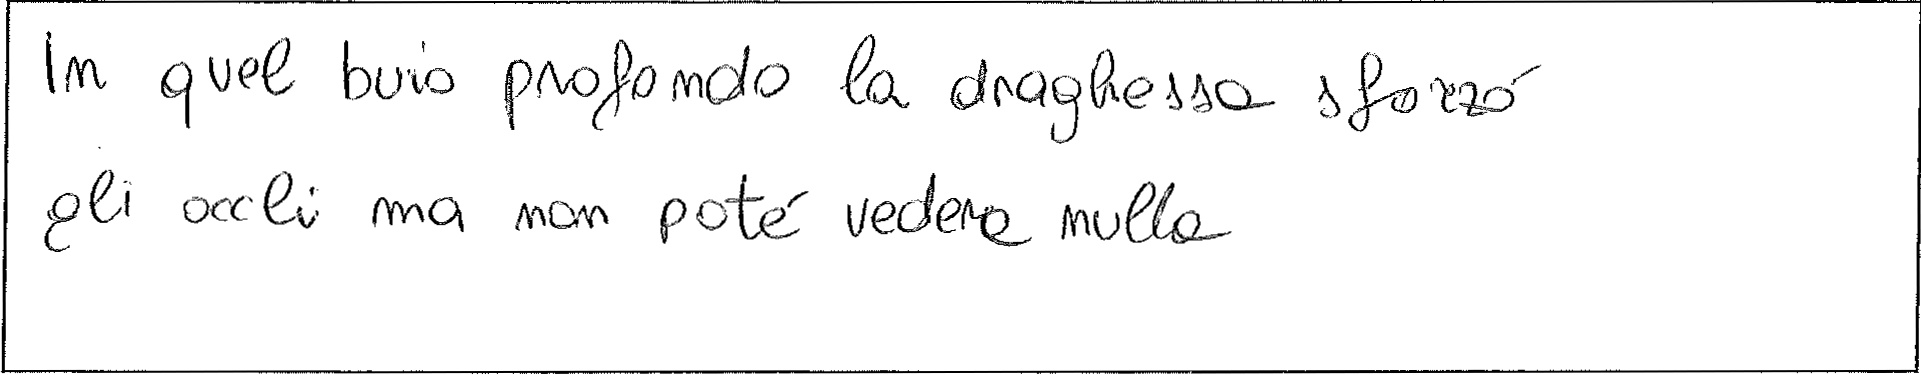 In quel buio profondo la draghessa sforzó
gli occhi ma non poté vedere nulla